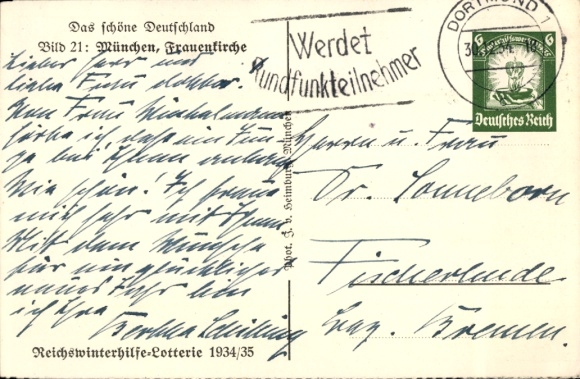 Das schöne Deutschland
Bild 21: München, Frauenkirche
Lieber Herr und
liebe Frau Doktor.
Von Frau
höre ich, daß ein Jun-
ge bei Ihnen
Wie schön! Ich freue
mich sehr mit Ihnen
Mit dem Wunsche
für ein glückliches
neues Jahr bin
ich Ihre
Bertha Schilling
Reichswinterhilfe-Lotterie 1934/35
Phot. J. v. Heimburg, München
Werdet
Rundfunkteilnehmer
DORTMUND 1
6 6
Deutsches Reich
Herrn u. Frau
Dr. Sonneborn
Fischerhude
Bez. Bremen.